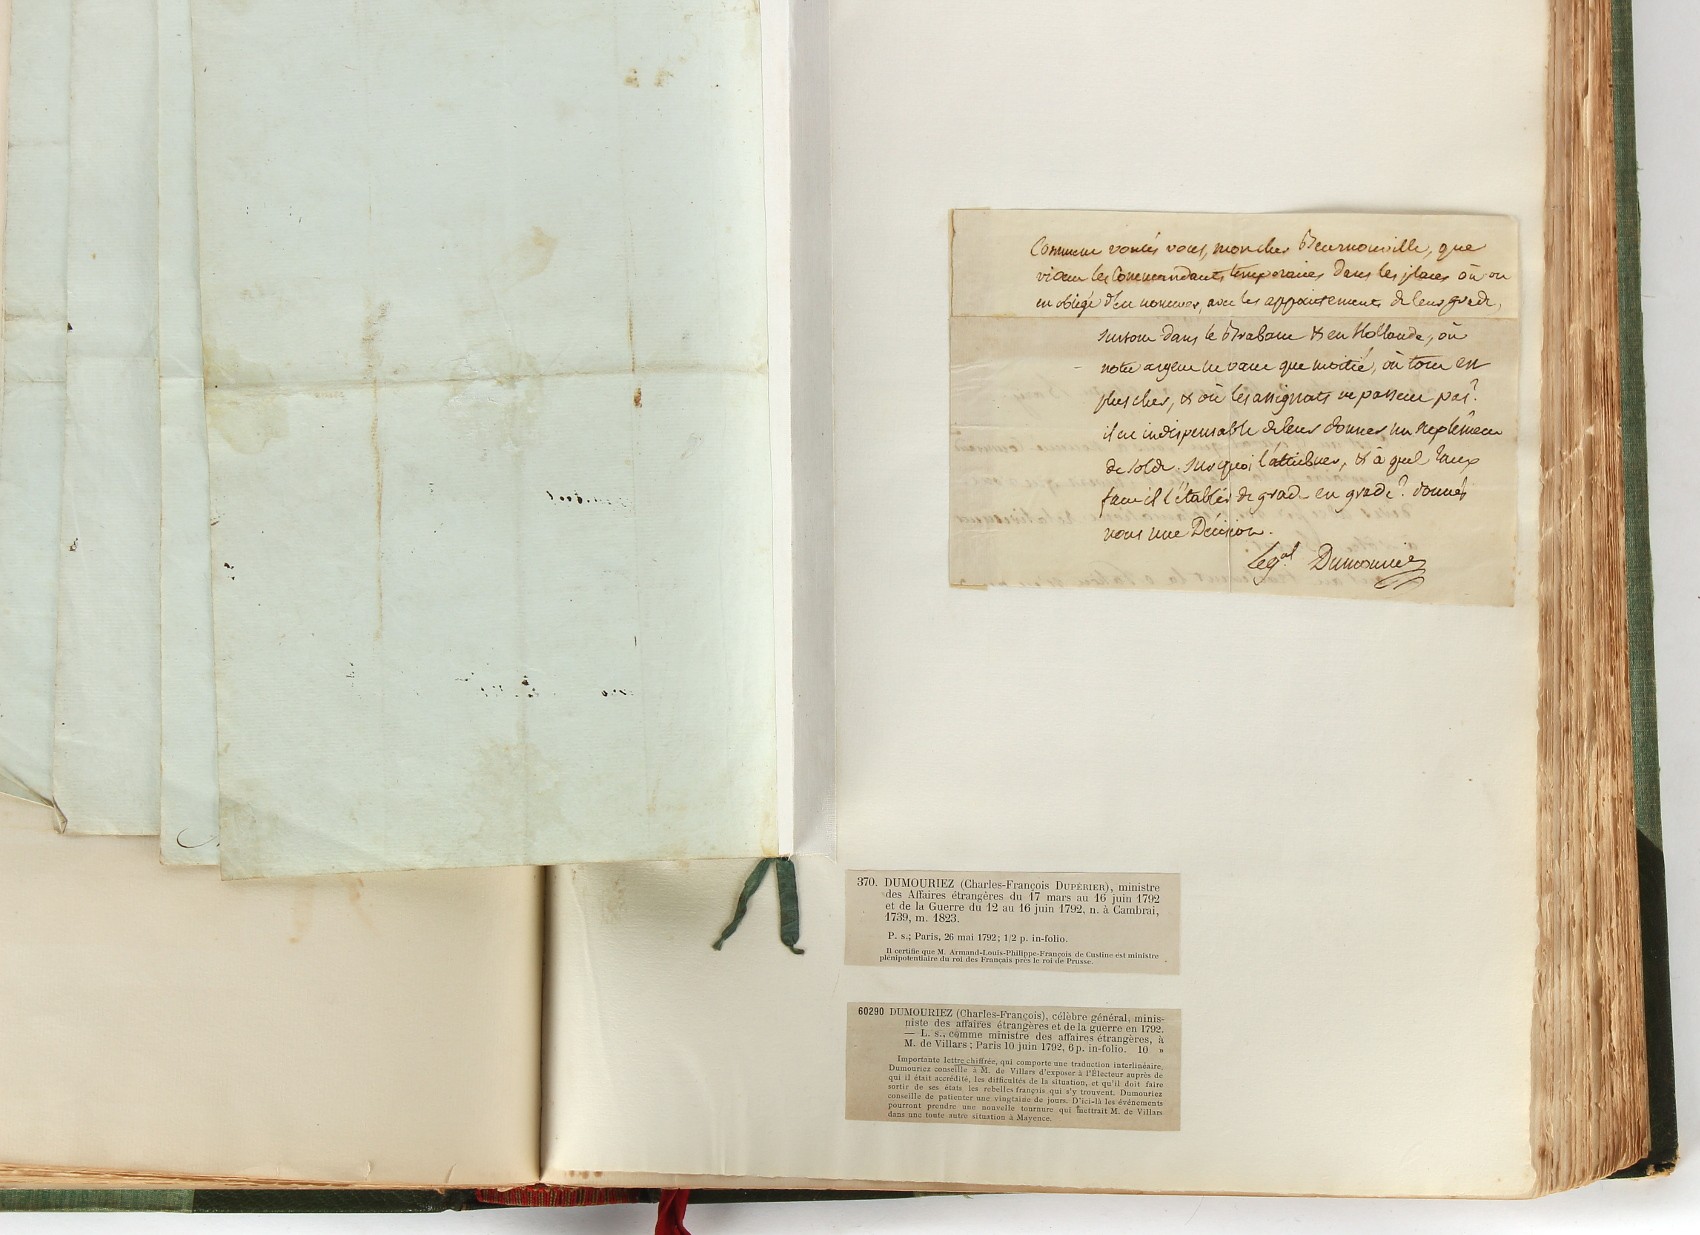 Comment voulés vous, mon cher Beurnonville, que
vivent les Commandants temporaires dans les places où on
est obligé d'en nommer, avec les appointements de leur grade,
surtout dans le Brabant & en Hollande, où
notre argent ne vaut que moitié, où tout est
plus cher, & où les assignats ne passent pas?
il est indispensable de leur donner un supplément
de solde. sur quoi l'attribuer, & à quel taux
faut il l'établir de grade en grade? donnés
nous une Décision.
Le gal Dumouriez
370. DUMOURIEZ (Charles-François DUPÉRIER), ministre
des Affaires étrangères du 17 mars au 16 juin 1792
et de la Guerre du 12 au 16 juin 1792, n. à Cambrai,
1739, m. 1823.
P. s.; Paris, 26 mai 1792; 1/2 p. in-folio.
Il certifie que M. Armand-Louis-Philippe-François de Custine est ministre
plénipotentiaire du roi des Français près le roi de Prusse.
60290 DUMOURIEZ (Charles-François), célèbre général, minis-
niste des affaires étrangères et de la guerre en 1792.
— L. s., comme ministre des affaires étrangères, à
M. de Villars; Paris 10 juin 1792, 6 p. in-folio. 10 »
Importante lettre chiffrée, qui comporte une traduction interlinéaire.
Dumouriez conseille à M. de Villars d'exposer à l'Électeur auprès de
qui il était accrédité, les difficultés de la situation, et qu'il doit faire
sortir de ses états les rebelles français qui s'y trouvent. Dumouriez
conseille de patienter une vingtaine de jours. D'ici-là les événements
pourront prendre une nouvelle tournure qui mettrait M. de Villars
dans une toute autre situation à Mayence.